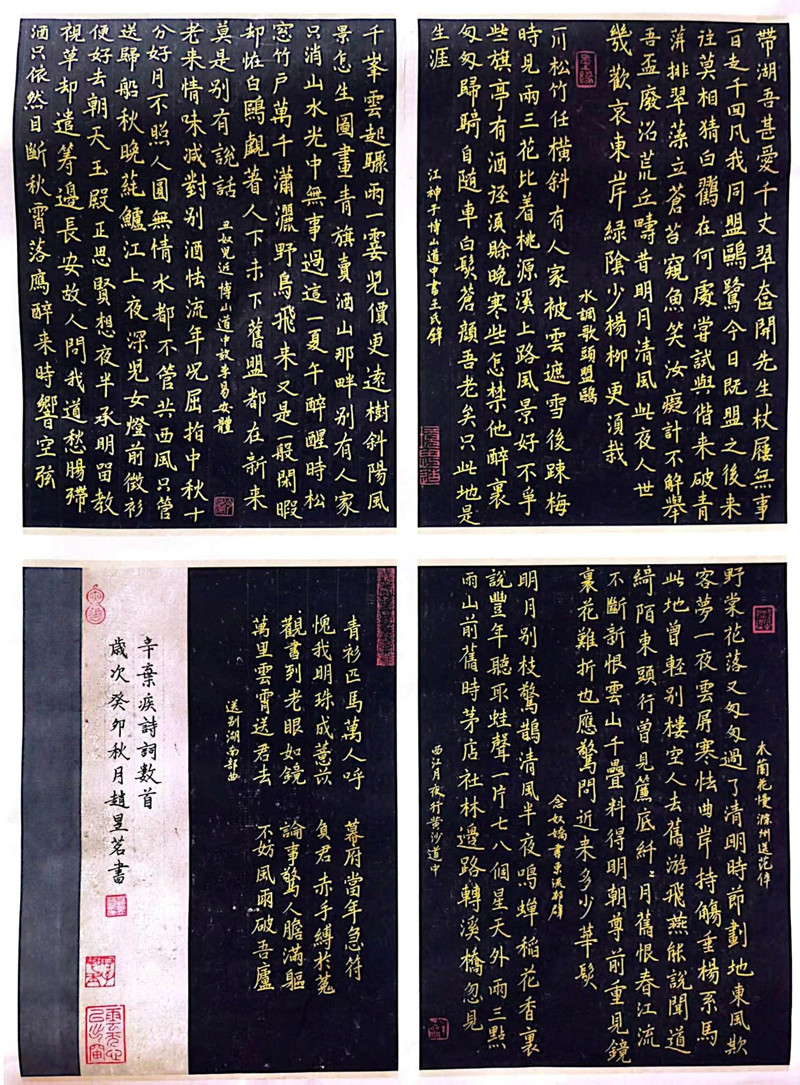 帶湖吾甚愛千丈翠奩開先生杖屨無事
一日走千回凡我同盟鷗鷺今日既盟之後来
往莫相猜白鶴在何處嘗試與偕来破青
萍排翠藻立蒼苔窺魚笑汝癡計不解舉
吾盃廢沼荒丘疇昔明月清風此夜人世
幾歡哀東岸綠陰少楊柳更須栽
水調歌頭盟鷗
一川松竹任橫斜有人家被雲遮雪後踈梅
時見兩三花比着桃源溪上路風景好不爭
些旗亭有酒徑須賒晚寒些怎禁他醉裏
匆匆歸騎自隨車白髮蒼顏吾老矣只此地是
生涯
江神子博山道中書王氏壁
千峯雲起驟雨一霎兒價更遠樹斜陽風
景怎生圖畫青旗賣酒山那畔別有人家
只消山水光中無事過這一夏午醉醒時松
窓竹戶萬千瀟灑野鳥飛来又是一般閑暇
却怪白鷗覷著人下未下舊盟都在新来
莫是別有說話
丑奴兒近博山道中效李易安體
老来情味減對別酒怯流年況屈指中秋十
分好月不照人圓無情水都不管共西風只管
送歸船秋晚蓴鱸江上夜深兒女燈前徵衫
便好去朝天玉殿正思賢想夜半承明留教
視草却遣籌邊長安故人問我道愁腸殢
酒只依然目斷秋霄落鴈醉来時響空弦
木蘭花慢滁州送范倅
野棠花落又匆匆過了清明時節剗地東風欺
客夢一夜雲屏寒怯曲岸持觴垂楊系馬
此地曾輕別樓空人去舊游飛燕能說聞道
綺陌東頭行曾見簾底纖纖月舊恨春江流
不斷新恨雲山千疊料得明朝尊前重見鏡
裏花難折也應驚問近来多少華髮
念奴嬌書東流村壁
明月別枝驚鵲清風半夜鳴蟬稻花香裏
說豐年聽取蛙聲一片七八個星天外兩三點
雨山前舊時茅店社林邊路轉溪橋忽見
西江月夜行黃沙道中
青衫匹馬萬人呼 幕府當年急符
愧我明珠成薏苡 負君赤手縛於菟
觀書到老眼如鏡 論事驚人膽滿軀
萬里雲霄送君去 不妨風雨破吾廬
送別湖南部曲
辛棄疾詩詞數首
歲次癸卯秋月趙星茗書